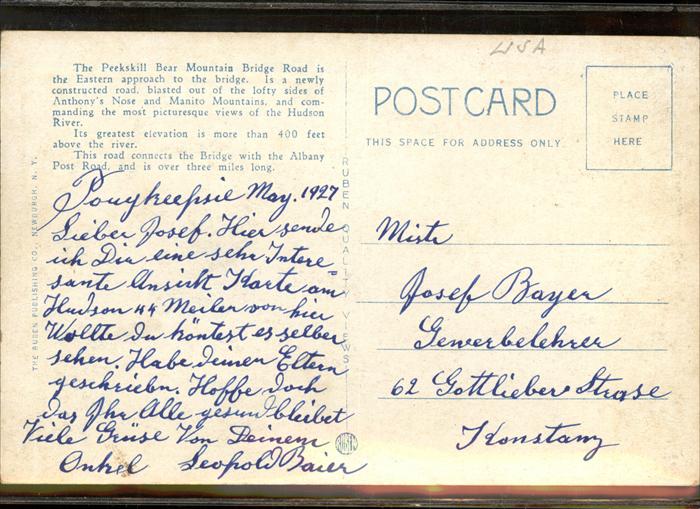 USA
The Peekskill Bear Mountain Bridge Road is
the Eastern approach to the bridge. Is a newly
constructed road, blasted out of the lofty sides of
Anthony's Nose and Manito Mountains, and com-
manding the most picturesque views of the Hudson
River.
Its greatest elevation is more than 400 feet
above the river.
This road connects the Bridge with the Albany
Post Road, and is over three miles long.
THE RUBEN PUBLISHING CO., NEWBURGH, N. Y.
RUBEN QUALITY VIEWS
POST CARD
THIS SPACE FOR ADDRESS ONLY
PLACE
STAMP
HERE
Pougkeepsie May. 1927
Lieber Josef. Hier sende
ich Dir eine sehr Intere=
sante Ansicht Karte am
Hudson 44 Meilen von hier
Wollte du köntest es selber
sehen. Habe deinen Eltern
geschriebn. Hoffe doch
das Ihr Alle gesund bleibet
Viele Grüse Von Deinem
Onkel Leopold Baier
Mistr
Josef Bayer
Gewerbelehrer
62 Gottlieber Strasse
Konstanz